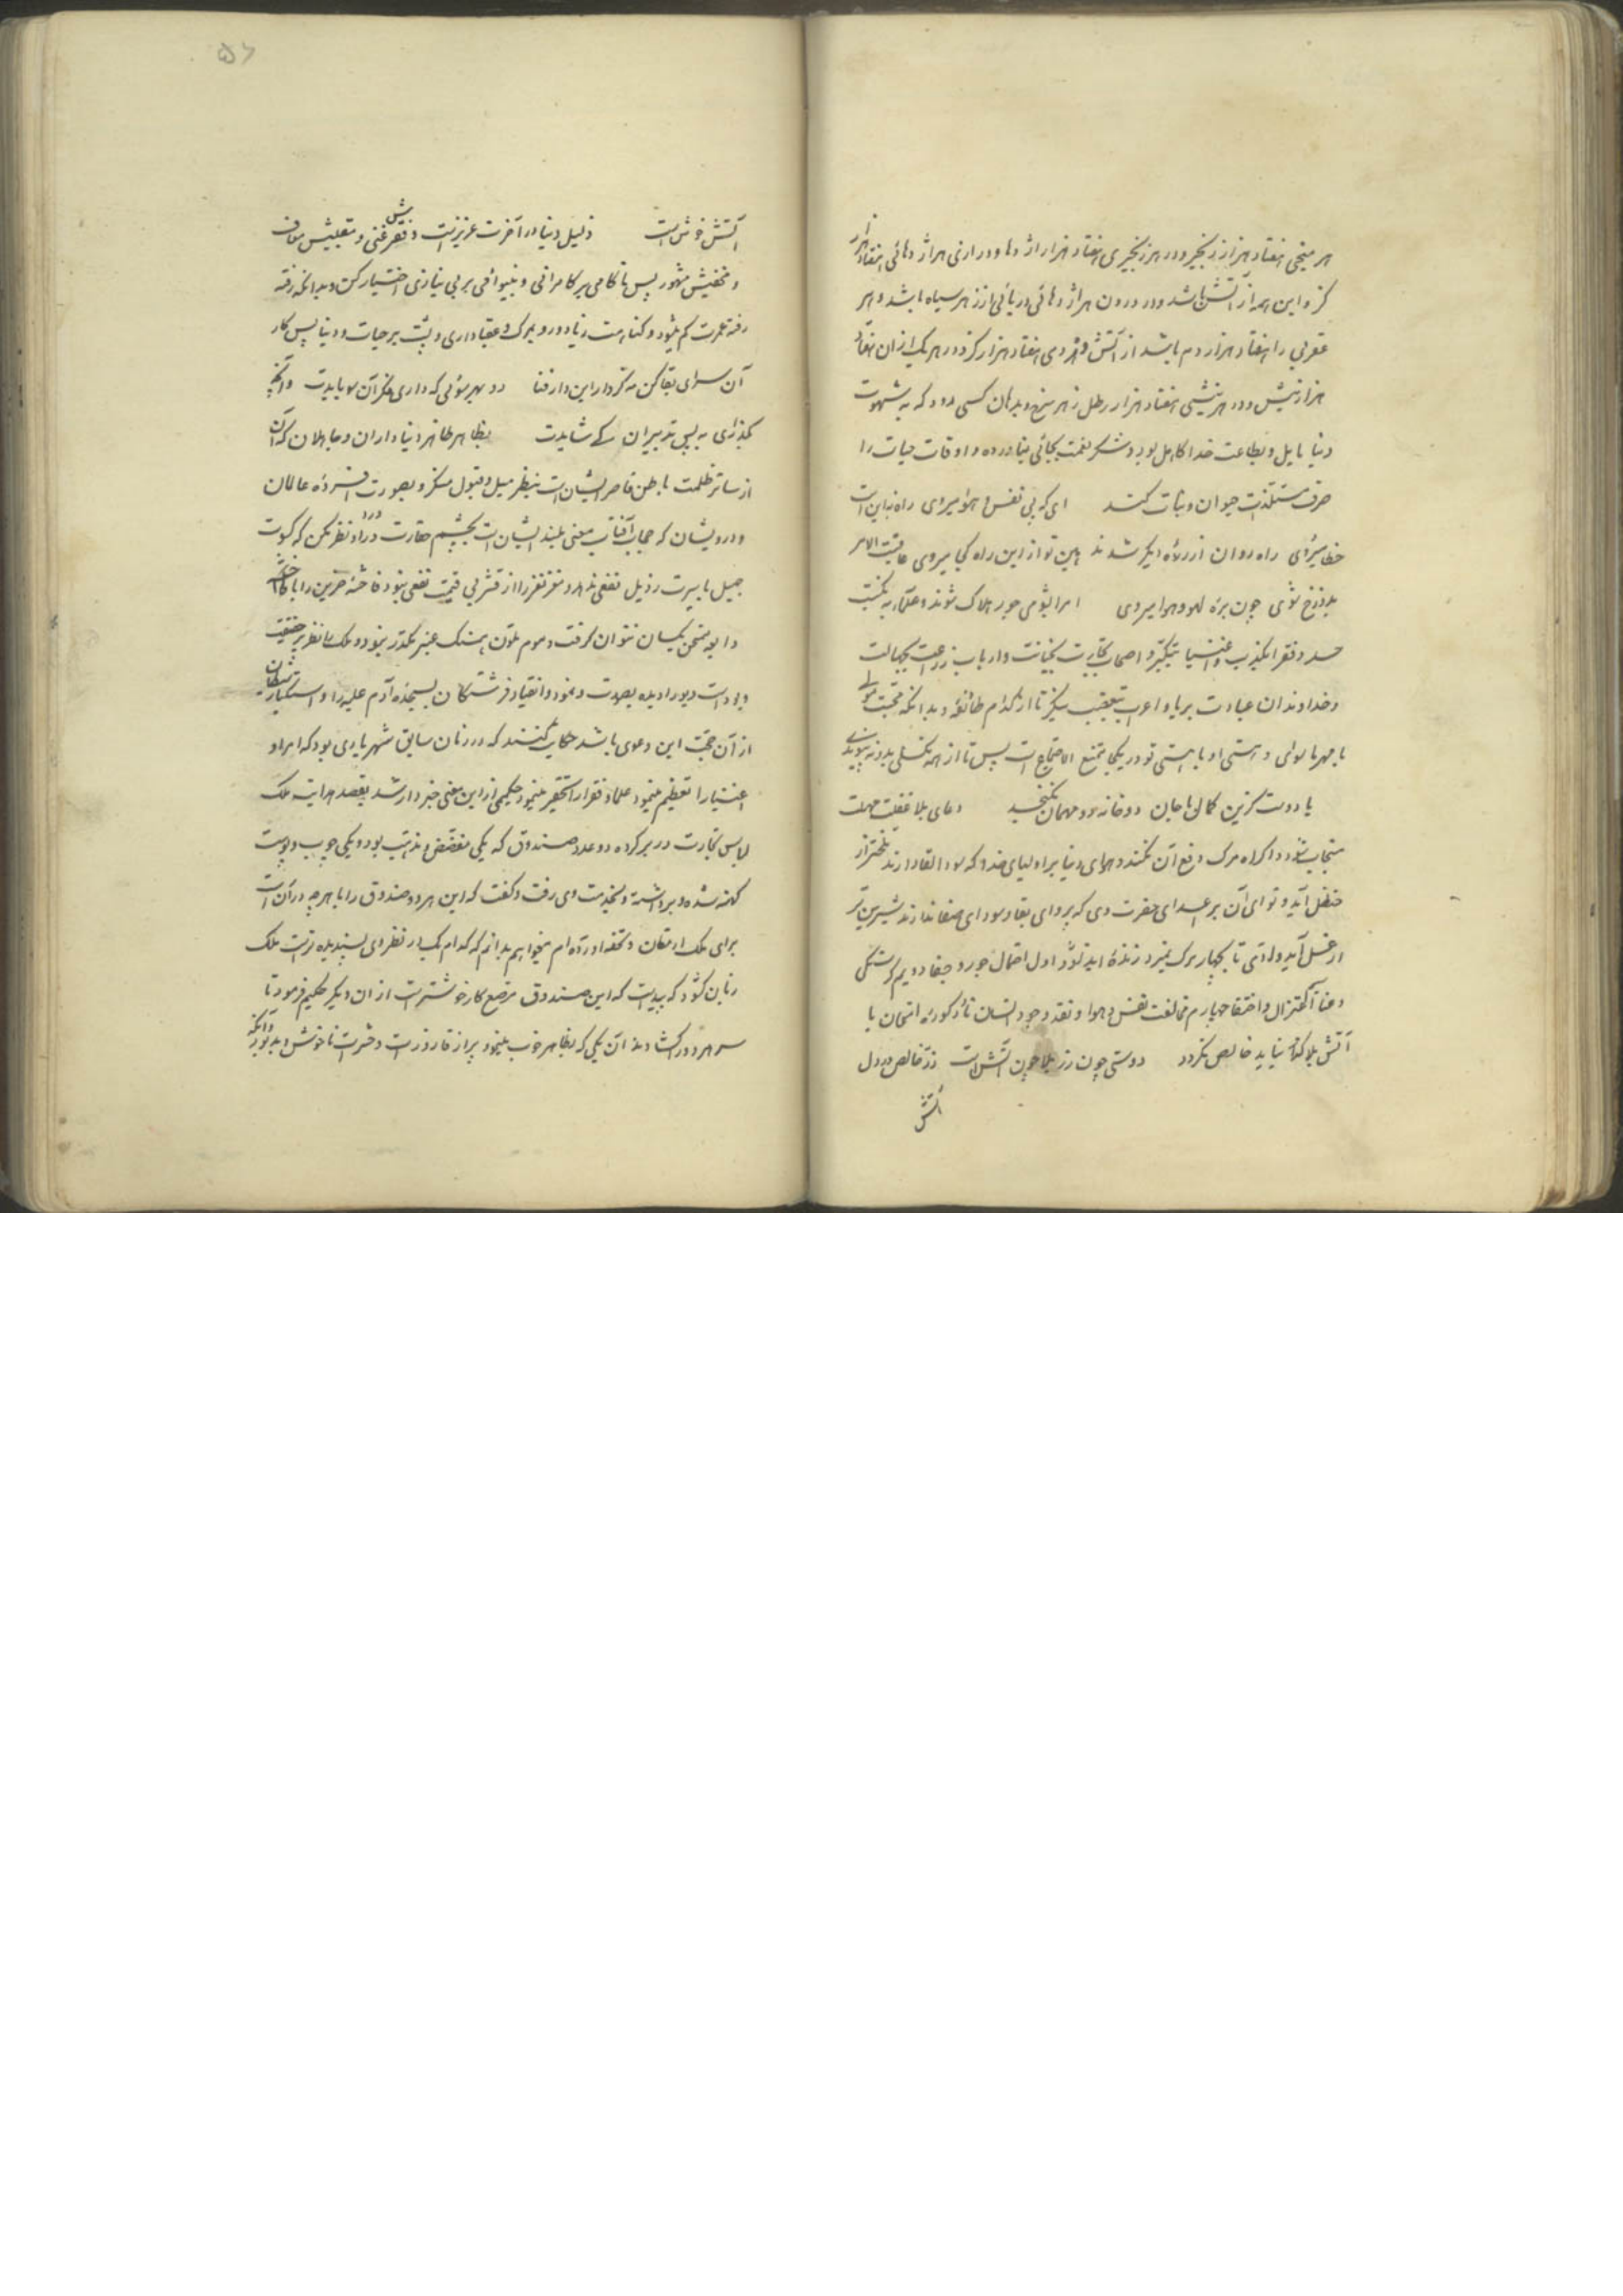 هر میخی هفتاد هزار زنجیر و در هر زنجیری هفتاد هزار اژدها و درازی هر اژدهائی هفتاد هزار
کز و این همه از آتش باشد و در درون هر اژدهائی دریائی از زهر سیاه باشد و هر
عقربی را هفتاد هزار دم باشد از آتش و هر دمی هفتاد هزار کز و در هر یک از آن هفتاد
هزار نیش و در هر نیشی هفتاد هزار رطل زهر سرخ و بدهان کسی رود که به شهوت
دنیا مایل و بطاعت خدا کاهل بود و شکر نعمت بجائی نیاورده و اوقات حیات را
صرف مستلذات حیوان و نبات کند ای که پی نفس و هوا میروی راه نه این است
خطا میروی راه روان از ره دیگر شدند هین تو ازین راه کجا میروی عاقبت الامر
بدوزخ شوی چون بره لهو و هوا میروی امرا بشومی جور هلاک شوند و علما به
حسد و فقرا بکذب و اغنیا بتکبر و اصحاب تجارت بخیانت و ارباب زراعت بجهالت
و خداوندان عبادت بریا و اعراب بتعصب بنگر تا از کدام طائفه و بدانکه محبت مولی
با مهر ماسوی و هستی او با هستی تو در یکجا ممتنع الاجتماع است پس تا از همه نکسلی بدو نه پیوندی
با دوست گزین کمال یا جان دو خانه دو مهمان نکنجد دعای بلا غفلت مهلت
مستجاب شود و اکراه مرک دفع آن نکند و هوای دنیا بر اولیای خدا که سود القا دارند تلختر از
حنظل آید و نوای آن بر اعدای حضرت وی که پروای بقا و سودای صفا ندارند شیرین تر
از عسل آید و تا بچهار مرک نمیرد زنده ابد نشود اول احتمال جور و جفا دویم گرسنگی
و عنا اعتزال و اختفا چهارم مخالفت نفس و هوا و نقد وجود انسان تا در کوره امتحان با
آتش بلا گداز نیاید خالص نگردد دوستی چون زر بلا چون آتش است زر خالص در دل
آتش
آتش خوش است ذلیل دنیا در آخرت عزیز است و فقیرش غنی و مقبلش معاف
و مخفیش مشهور پس ناکامی بر کامرانی و بینوائی بر بی نیازی اختیار کن و بدانکه رفته
رفته عمرت کم میشود و کناهت زیاد و رو بمرک و عقبا داری و پشت بر حیات و دنیا پس کار
آن سرای بقا کن نه کردار این دار فنا رو بهر سوئی که داری فکر آن سو بایدت و آنچه
بگذری به پس تدبیر آن کی شایدت بظاهر طاهر دنیا داران و جاهلان که آن
از ساتر ظلمت باطن قاصر ایشان است بنظر میل و قبول منگر و بصورت افسرده عالمان
و درویشان که حجاب آفتاب معنی بلند ایشان است بچشم حقارت و ازدرا نظر مکن که کسوت
جمیل با سیرت رذیل نفعی ندهد و مغز نغز را از قشر بی قیمت نقصی نبود فاحشه مزین را با
رابعه ممتحن یکسان نتوان گرفت و موم ملون بسنگ عنبر مکدر نبود و ملک را نظر بر حقیقت
بوده است و دیو را دیده بصورت و نمود و انقیاد فرشتگان بسجده آدم علیه را و استکبار شیطان
از آن حجت این دعوی باشد حکایت کنند که در زمان سابق شهریاری بود که امرا و
اغنیا را تعظیم مینمود علما و فقرا را تحقیر مینمود حکیمی از این معنی خبردار شد بقصد هدایت ملک
لباس تجارت در بر کرده دو عدد صندوق که یکی مفضض و مذهب بود و یکی چوب و پوست
کهنه شده و برداشته و بخدمت وی رفت و گفت که این هر دو صندوق را با هر چه در آن است
برای ملک ارمغان و تحفه آورده ام میخواهم بدانم که کدام یک در نظر وی پسندیده تر است ملک
زبان گشود که پیداست که این صندوق مرصع کار خوشتر است از آن دیگر حکیم فرمود تا
سر هر دو را گشادند آن یکی که بظاهر خوب مینمود پر از قاذورات و حشرات ناخوش و بد بود و آنکه